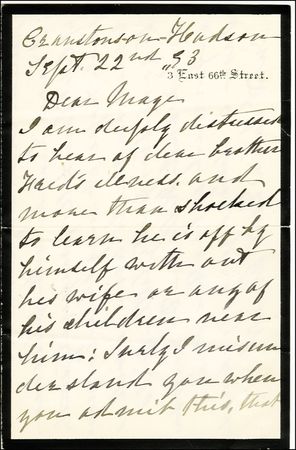 Cranstons on Hudson
Sept. 22nd "93
3 East 66th Street.
Dear Mage
I am deeply distressed
to hear of dear brother
Fred's illness. and
more than shocked
to learn he is off by
himself with out
his wife or any of
his children near
him; Surly I misun
derstand you when
you admit this, that